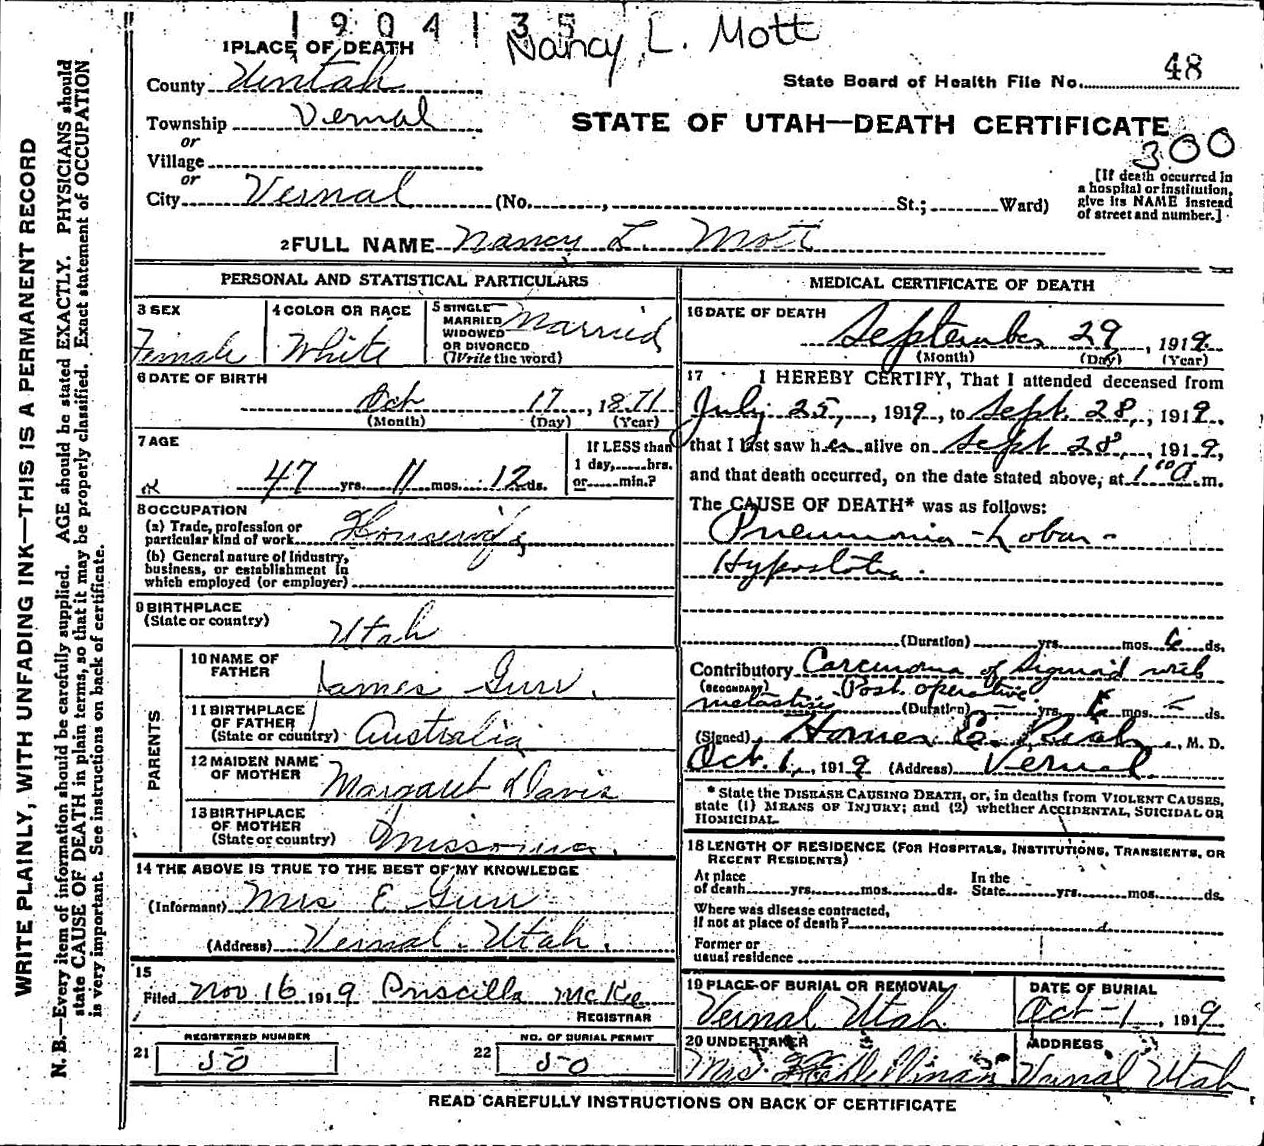 1904135
Nancy L. Mott
1 PLACE OF DEATH
County Uintah
State Board of Health File No. 48
Township Vernal
or
Village
or
City Vernal (No. , St.; Ward)
STATE OF UTAH—DEATH CERTIFICATE
300
[If death occurred in
a hospital or institution,
give its NAME instead
of street and number.]
2 FULL NAME Nancy L. Mott
WRITE PLAINLY, WITH UNFADING INK—THIS IS A PERMANENT RECORD
N. B.—Every item of information should be carefully supplied. AGE should be stated EXACTLY. PHYSICIANS should
state CAUSE OF DEATH in plain terms, so that it may be properly classified. Exact statement of OCCUPATION
is very important. See instructions on back of certificate.
PERSONAL AND STATISTICAL PARTICULARS
3 SEX
Female
4 COLOR OR RACE
White
5 SINGLE
MARRIED
WIDOWED
OR DIVORCED
(Write the word)
Married
6 DATE OF BIRTH
Oct 17, 1871
(Month) (Day) (Year)
7 AGE
47 yrs. 11 mos. 12 ds.
If LESS than
1 day, hrs.
or min.?
8 OCCUPATION
(a) Trade, profession or
particular kind of work Housewife
(b) General nature of Industry,
business, or establishment in
which employed (or employer)
9 BIRTHPLACE
(State or country)
Utah
PARENTS
10 NAME OF
FATHER
James Gurr.
11 BIRTHPLACE
OF FATHER
(State or country) Australia
12 MAIDEN NAME
OF MOTHER
Margaret Davis
13 BIRTHPLACE
OF MOTHER
(State or country) Missouria.
14 THE ABOVE IS TRUE TO THE BEST OF MY KNOWLEDGE
(Informant) Mrs E Gurr
(Address) Vernal. Utah.
15
Filed Nov 16 1919 Priscilla McKee
REGISTRAR
REGISTERED NUMBER
21 50
NO. OF BURIAL PERMIT
22 50
MEDICAL CERTIFICATE OF DEATH
16 DATE OF DEATH
September 29, 1919.
(Month) (Day) (Year)
17 I HEREBY CERTIFY, That I attended deceased from
July 25, 1919, to Sept. 28, 1919.
that I last saw her alive on Sept 28, 1919,
and that death occurred, on the date stated above, at 1 00 a.m.
The CAUSE OF DEATH* was as follows:
Pneumonia - Lobar -
Hypostatic.
(Duration) yrs. mos. 6 ds.
Contributory Carcinoma of Sigmoid with
(SECONDARY) Post. operative
metastisis (Duration) — yrs. 6 mos. — ds.
(Signed) Homer E. , M. D.
Oct. 1, 1919 (Address) Vernal.
* State the DISEASE CAUSING DEATH, or, in deaths from VIOLENT CAUSES,
state (1) MEANS OF INJURY; and (2) whether ACCIDENTAL, SUICIDAL OR
HOMICIDAL.
18 LENGTH OF RESIDENCE (FOR HOSPITALS, INSTITUTIONS, TRANSIENTS, OR
RECENT RESIDENTS)
At place
of death yrs. mos. ds.
In the
State yrs. mos. ds.
Where was disease contracted,
if not at place of death?
Former or
usual residence
19 PLACE OF BURIAL OR REMOVAL
Vernal Utah
DATE OF BURIAL
Oct-1, 1919.
20 UNDERTAKER
Mrs
ADDRESS
Vernal Utah
READ CAREFULLY INSTRUCTIONS ON BACK OF CERTIFICATE